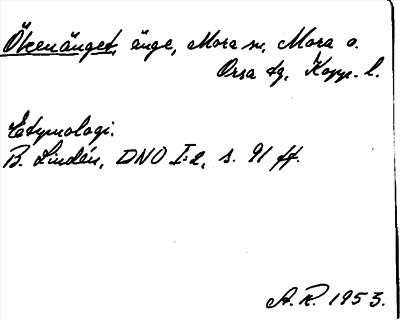 Ökenänget, änge, Mora sn, Mora o.
Orsa tg, Kopp. l.
Etymologi:
B. Lindén, DNO I:2, s. 91 ff.
A. R. 1953.